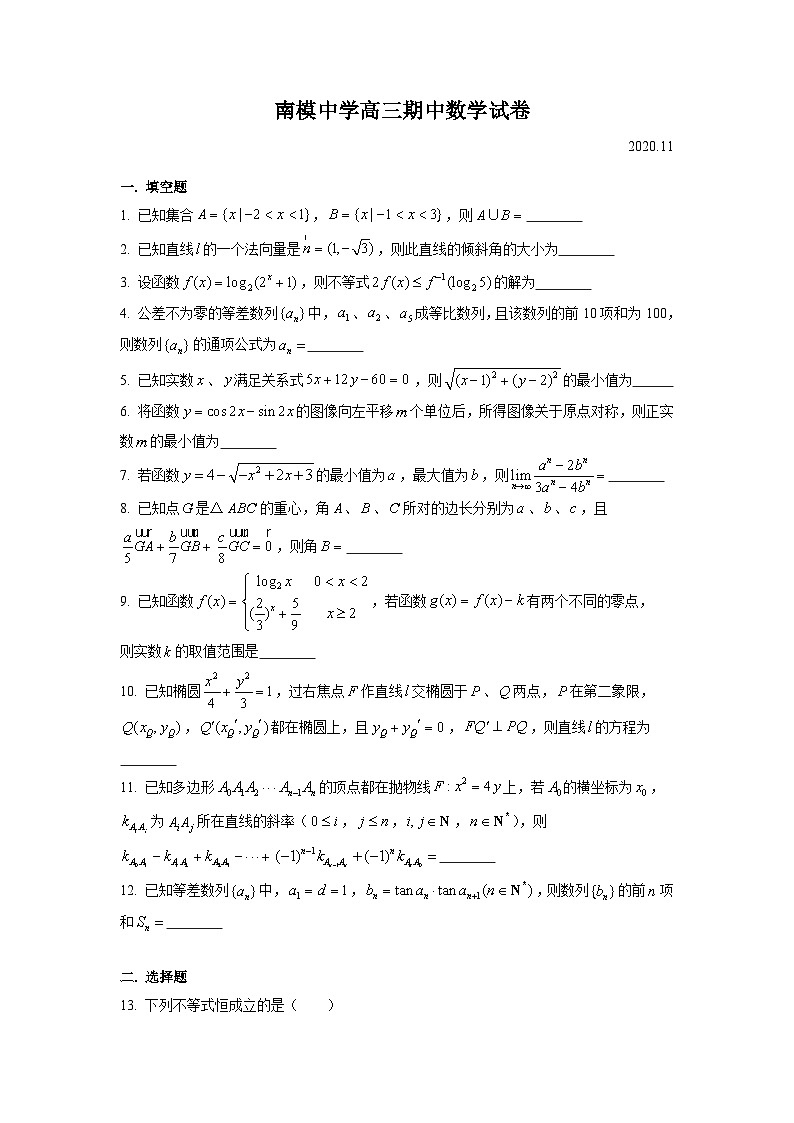 南模中学高三期中数学试卷
2020.11
一. 填空题
1. 已知集合 A = {x | −2 < x < 1}，B = {x | −1 < x < 3}，则 A∪B = ________
2. 已知直线 l 的一个法向量是 n = (1, −√3)，则此直线的倾斜角的大小为________
3. 设函数 f(x) = log₂(2ˣ + 1)，则不等式 2f(x) ≤ f⁻¹(log₂5) 的解为________
4. 公差不为零的等差数列{aₙ}中，a₁、a₂、a₅成等比数列，且该数列的前 10 项和为 100，
则数列{aₙ}的通项公式为 aₙ = ________
5. 已知实数 x、y 满足关系式 5x + 12y − 60 = 0，则 √((x−1)² + (y−2)²) 的最小值为______
6. 将函数 y = cos2x − sin2x 的图像向左平移 m 个单位后，所得图像关于原点对称，则正实
数 m 的最小值为________
7. 若函数 y = 4 − √(−x² + 2x + 3) 的最小值为 a，最大值为 b，则 lim(n→∞) (aⁿ − 2bⁿ)/(3aⁿ − 4bⁿ) = ________
8. 已知点 G 是△ABC 的重心，角 A、B、C 所对的边长分别为 a、b、c，且
a/5 GA + b/7 GB + c/8 GC = 0，则角 B = ________
9. 已知函数 f(x) = { log₂x 0 < x < 2; (2/3)ˣ + 5/9 x ≥ 2，若函数 g(x) = f(x) − k 有两个不同的零点，
则实数 k 的取值范围是________
10. 已知椭圆 x²/4 + y²/3 = 1，过右焦点 F 作直线 l 交椭圆于 P、Q 两点，P 在第二象限，
Q(x_Q, y_Q)，Q′(x_Q′, y_Q′) 都在椭圆上，且 y_Q + y_Q′ = 0，FQ′ ⊥ PQ，则直线 l 的方程为
________
11. 已知多边形 A₀A₁A₂⋯Aₙ₋₁Aₙ 的顶点都在抛物线 F : x² = 4y 上，若 A₀ 的横坐标为 x₀，
k_{AᵢAⱼ} 为 AᵢAⱼ 所在直线的斜率（0 ≤ i，j ≤ n，i, j ∈ N，n ∈ N*），则
k_{A₀A₁} − k_{A₁A₂} + k_{A₂A₃} − ⋯ + (−1)ⁿ⁻¹k_{Aₙ₋₁Aₙ} + (−1)ⁿk_{AₙA₀} = ________
12. 已知等差数列{aₙ}中，a₁ = d = 1，bₙ = tan aₙ · tan aₙ₊₁ (n ∈ N*)，则数列{bₙ}的前 n 项
和 Sₙ = ________
二. 选择题
13. 下列不等式恒成立的是（ ）